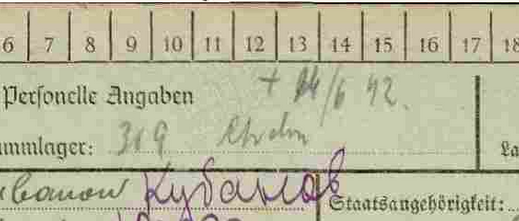 6 7 8 9 10 11 12 13 14 15 16 17 18
Personelle Angaben + 14/6 42.
mmlager: 319 Cholm La
ubanow Кубанов Staatsangehörigkeit: